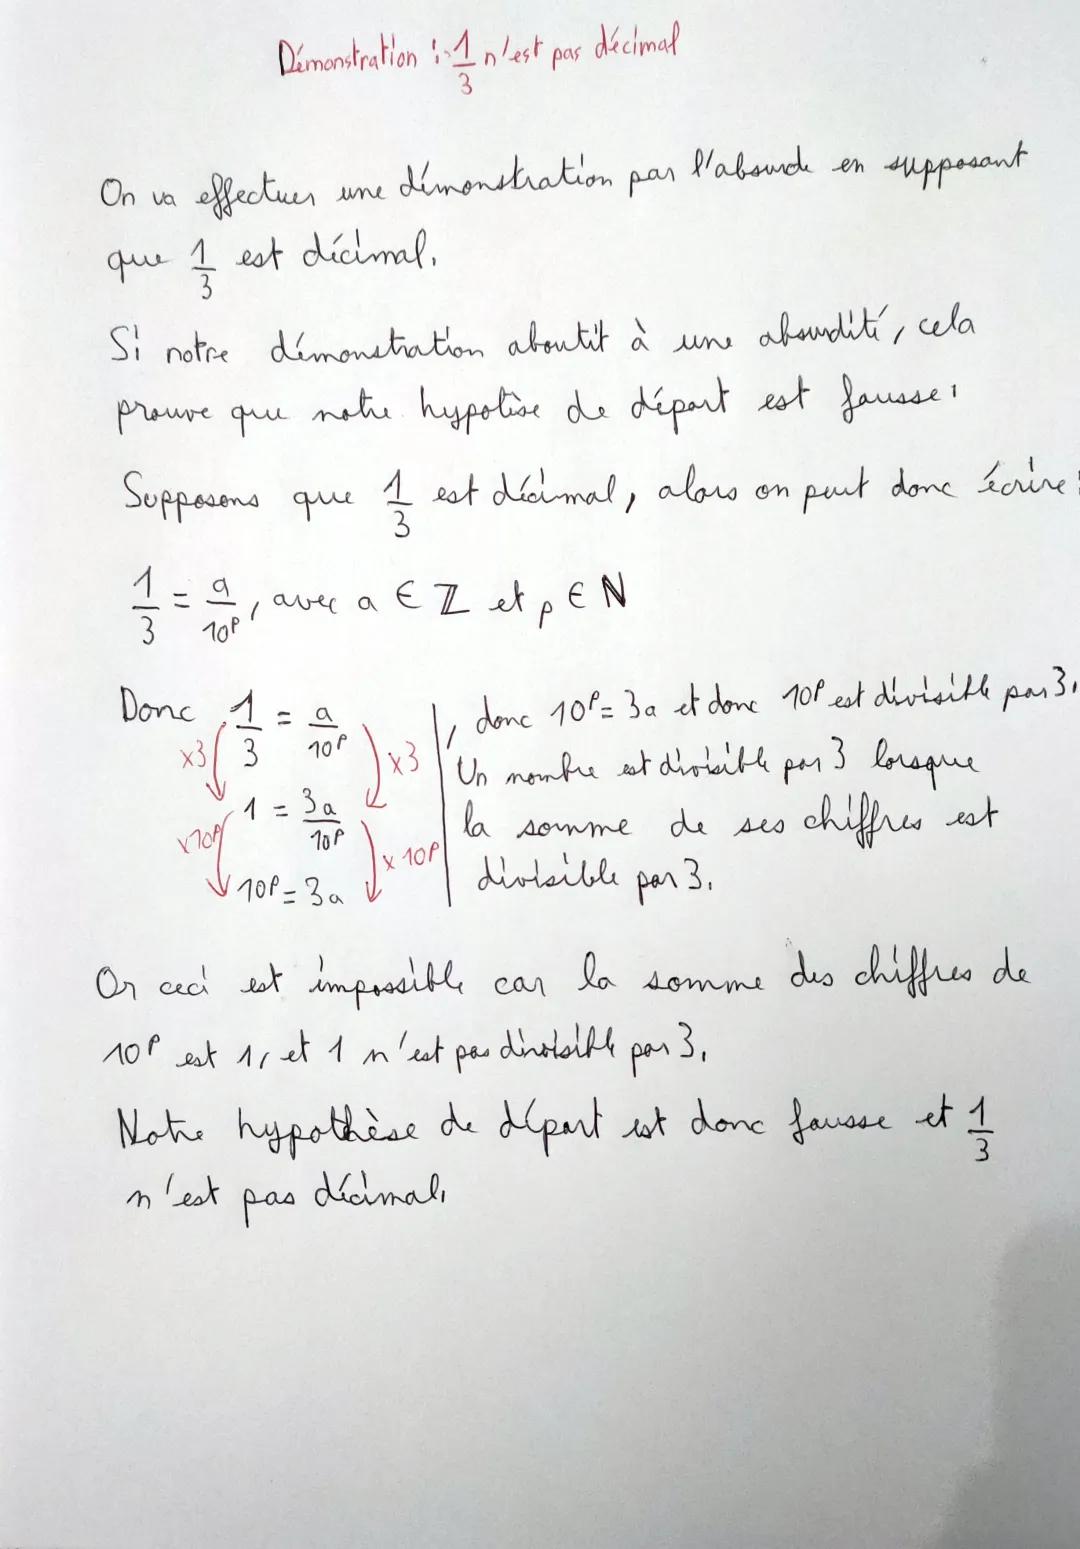 Démonstration : 1/3 n'est pas décimal
On va effectuer une démonstration par l'absurde en supposant
que 1/3 est décimal.
Si notre démonstration aboutit à une absurdité, cela
prouve que notre hypotèse de départ est fausse.
Supposons que 1/3 est décimal, alors on peut donc écrire :
1/3 = a/10^p, avec a ∈ ℤ et p ∈ ℕ
Donc 1/3 = a/10^p
x3 x3
1 = 3a/10^p
x10^p x 10^p
10^p = 3a
, donc 10^p = 3a et donc 10^p est divisible par 3.
Un nombre est divisible par 3 lorsque
la somme de ses chiffres est
divisible par 3.
Or ceci est impossible car la somme des chiffres de
10^p est 1, et 1 n'est pas divisible par 3.
Notre hypothèse de départ est donc fausse et 1/3
n'est pas décimal.